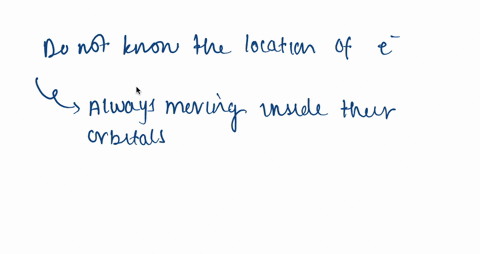 Do not know the location of e⁻
Always moving inside their
orbitals